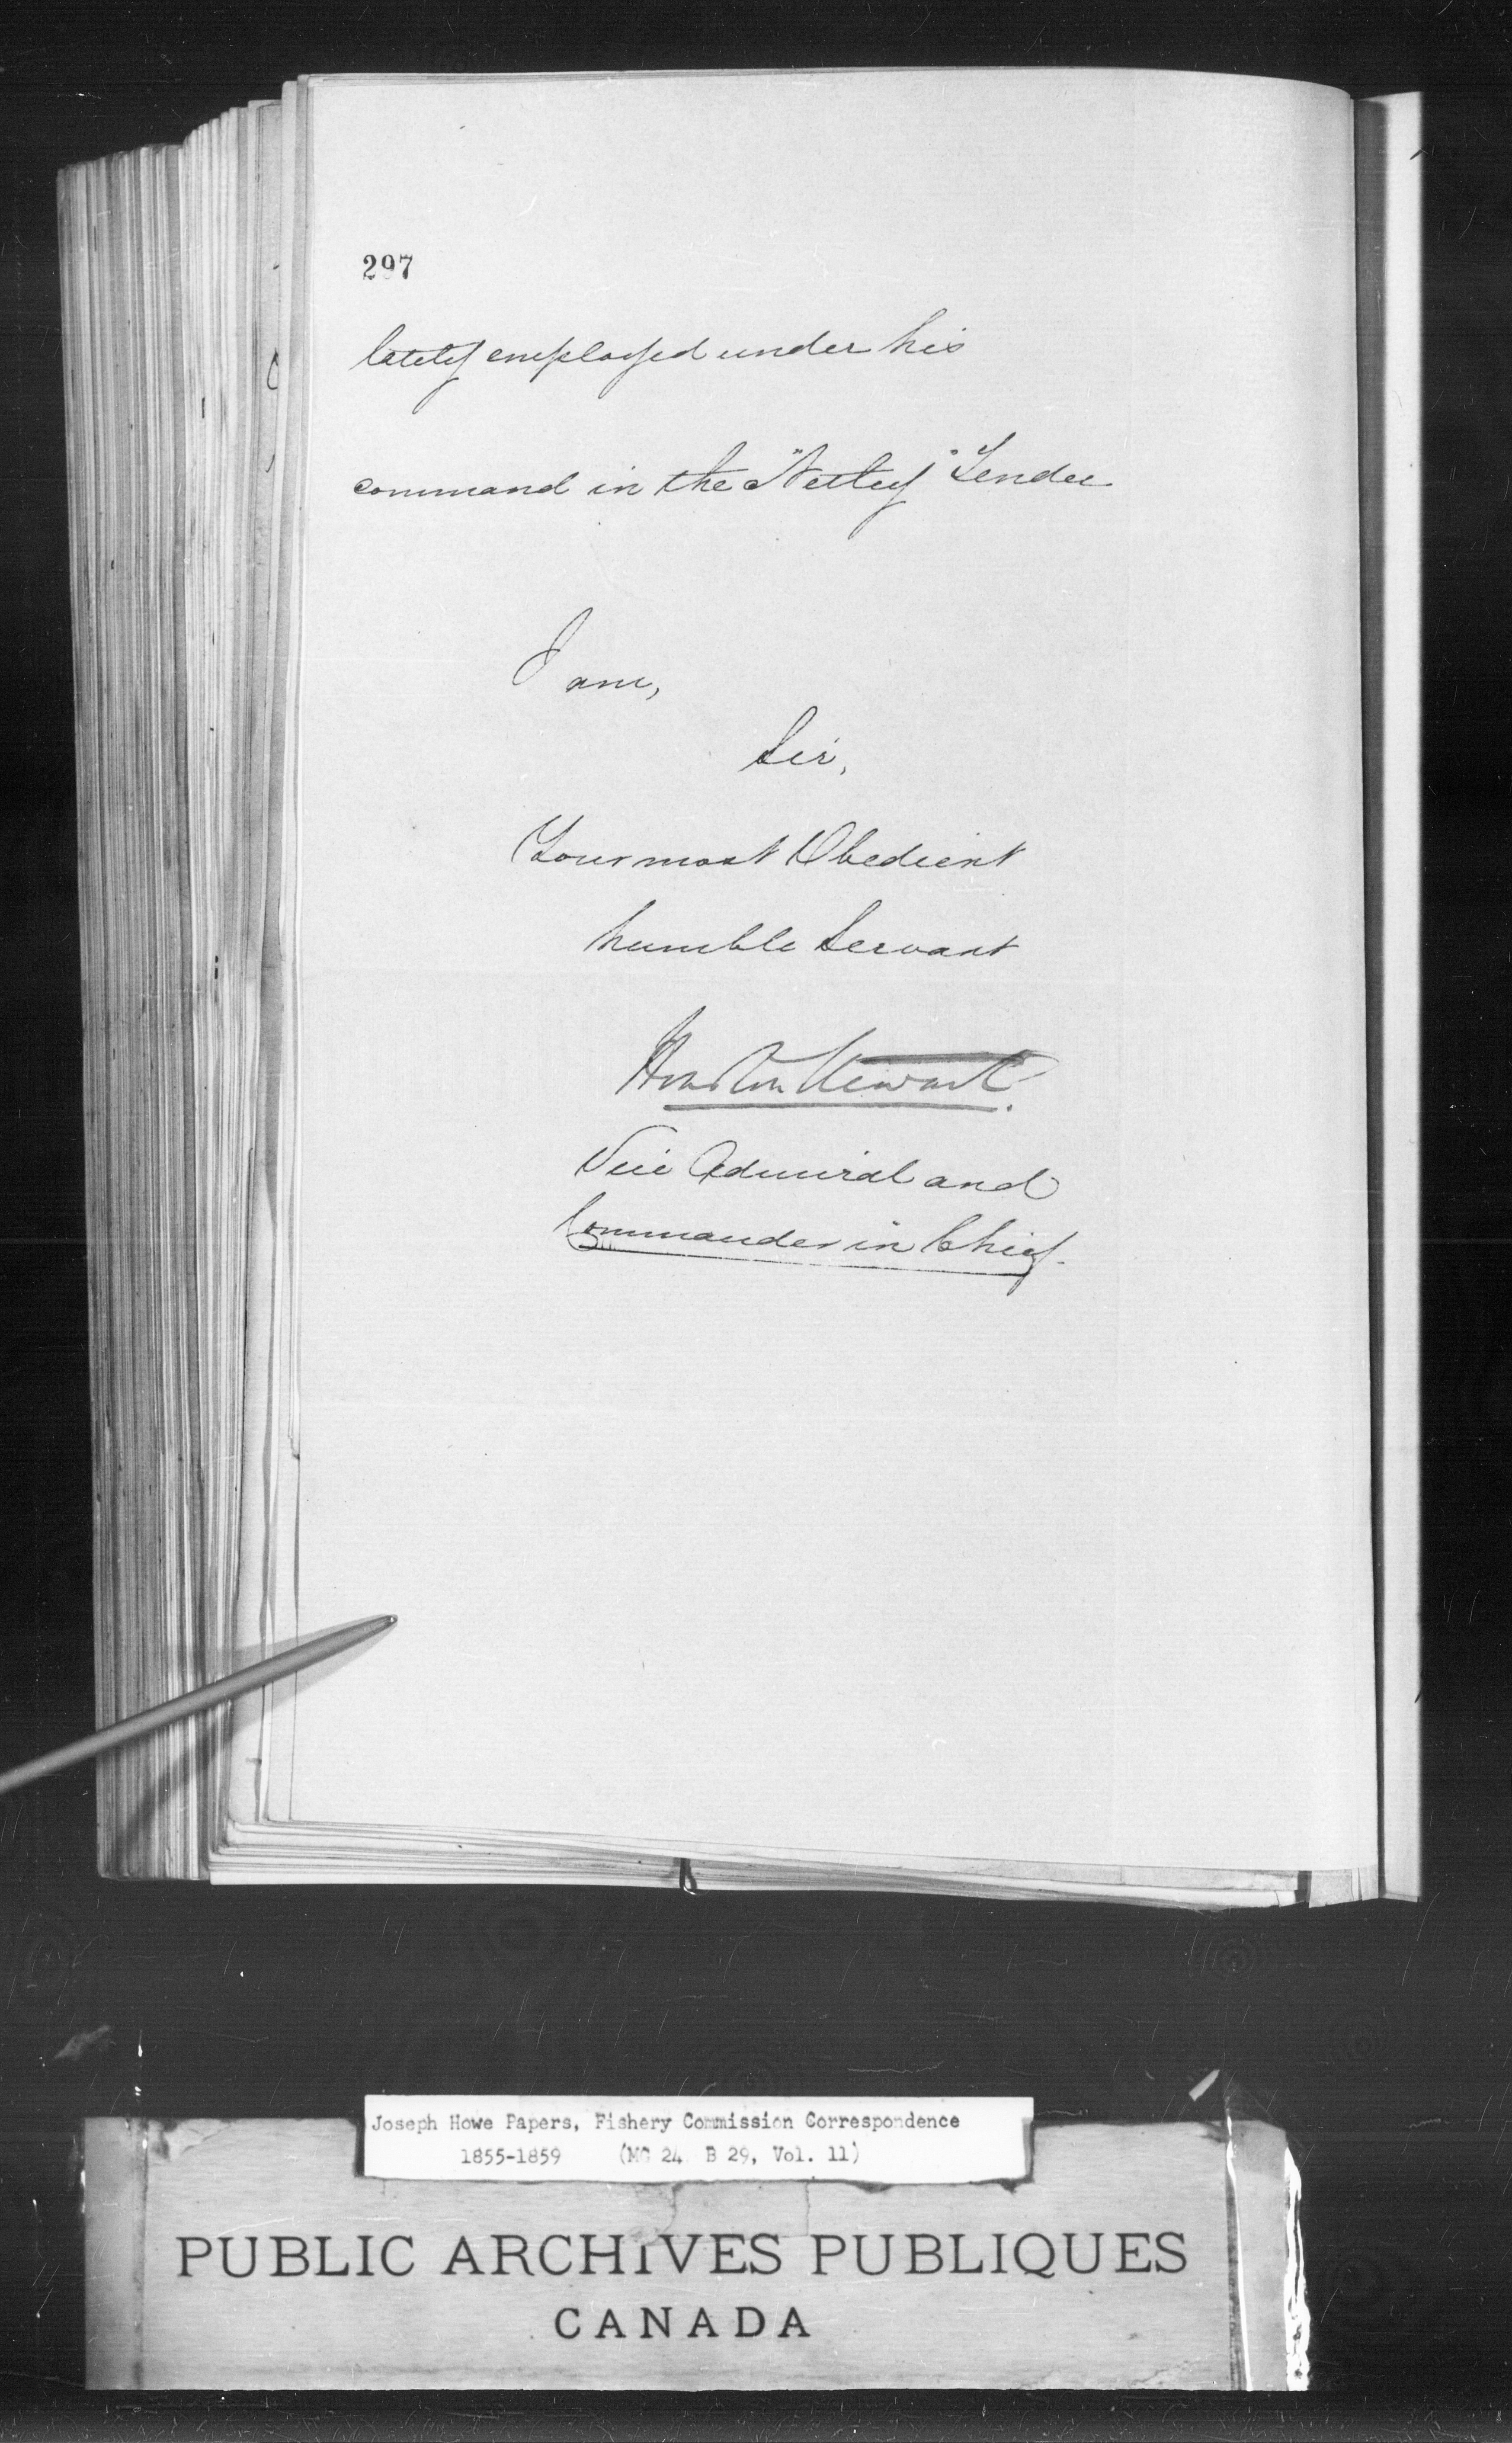 297
lately employed under his
command in the "Netley" Tender
I am,
Sir,
Your most Obedient
humble Servant
Houston Stewart.
Vice Admiral and
Commander in Chief.
Joseph Howe Papers, Fishery Commission Correspondence
1855-1859 (MG 24 B 29, Vol. 11)
PUBLIC ARCHIVES PUBLIQUES
CANADA